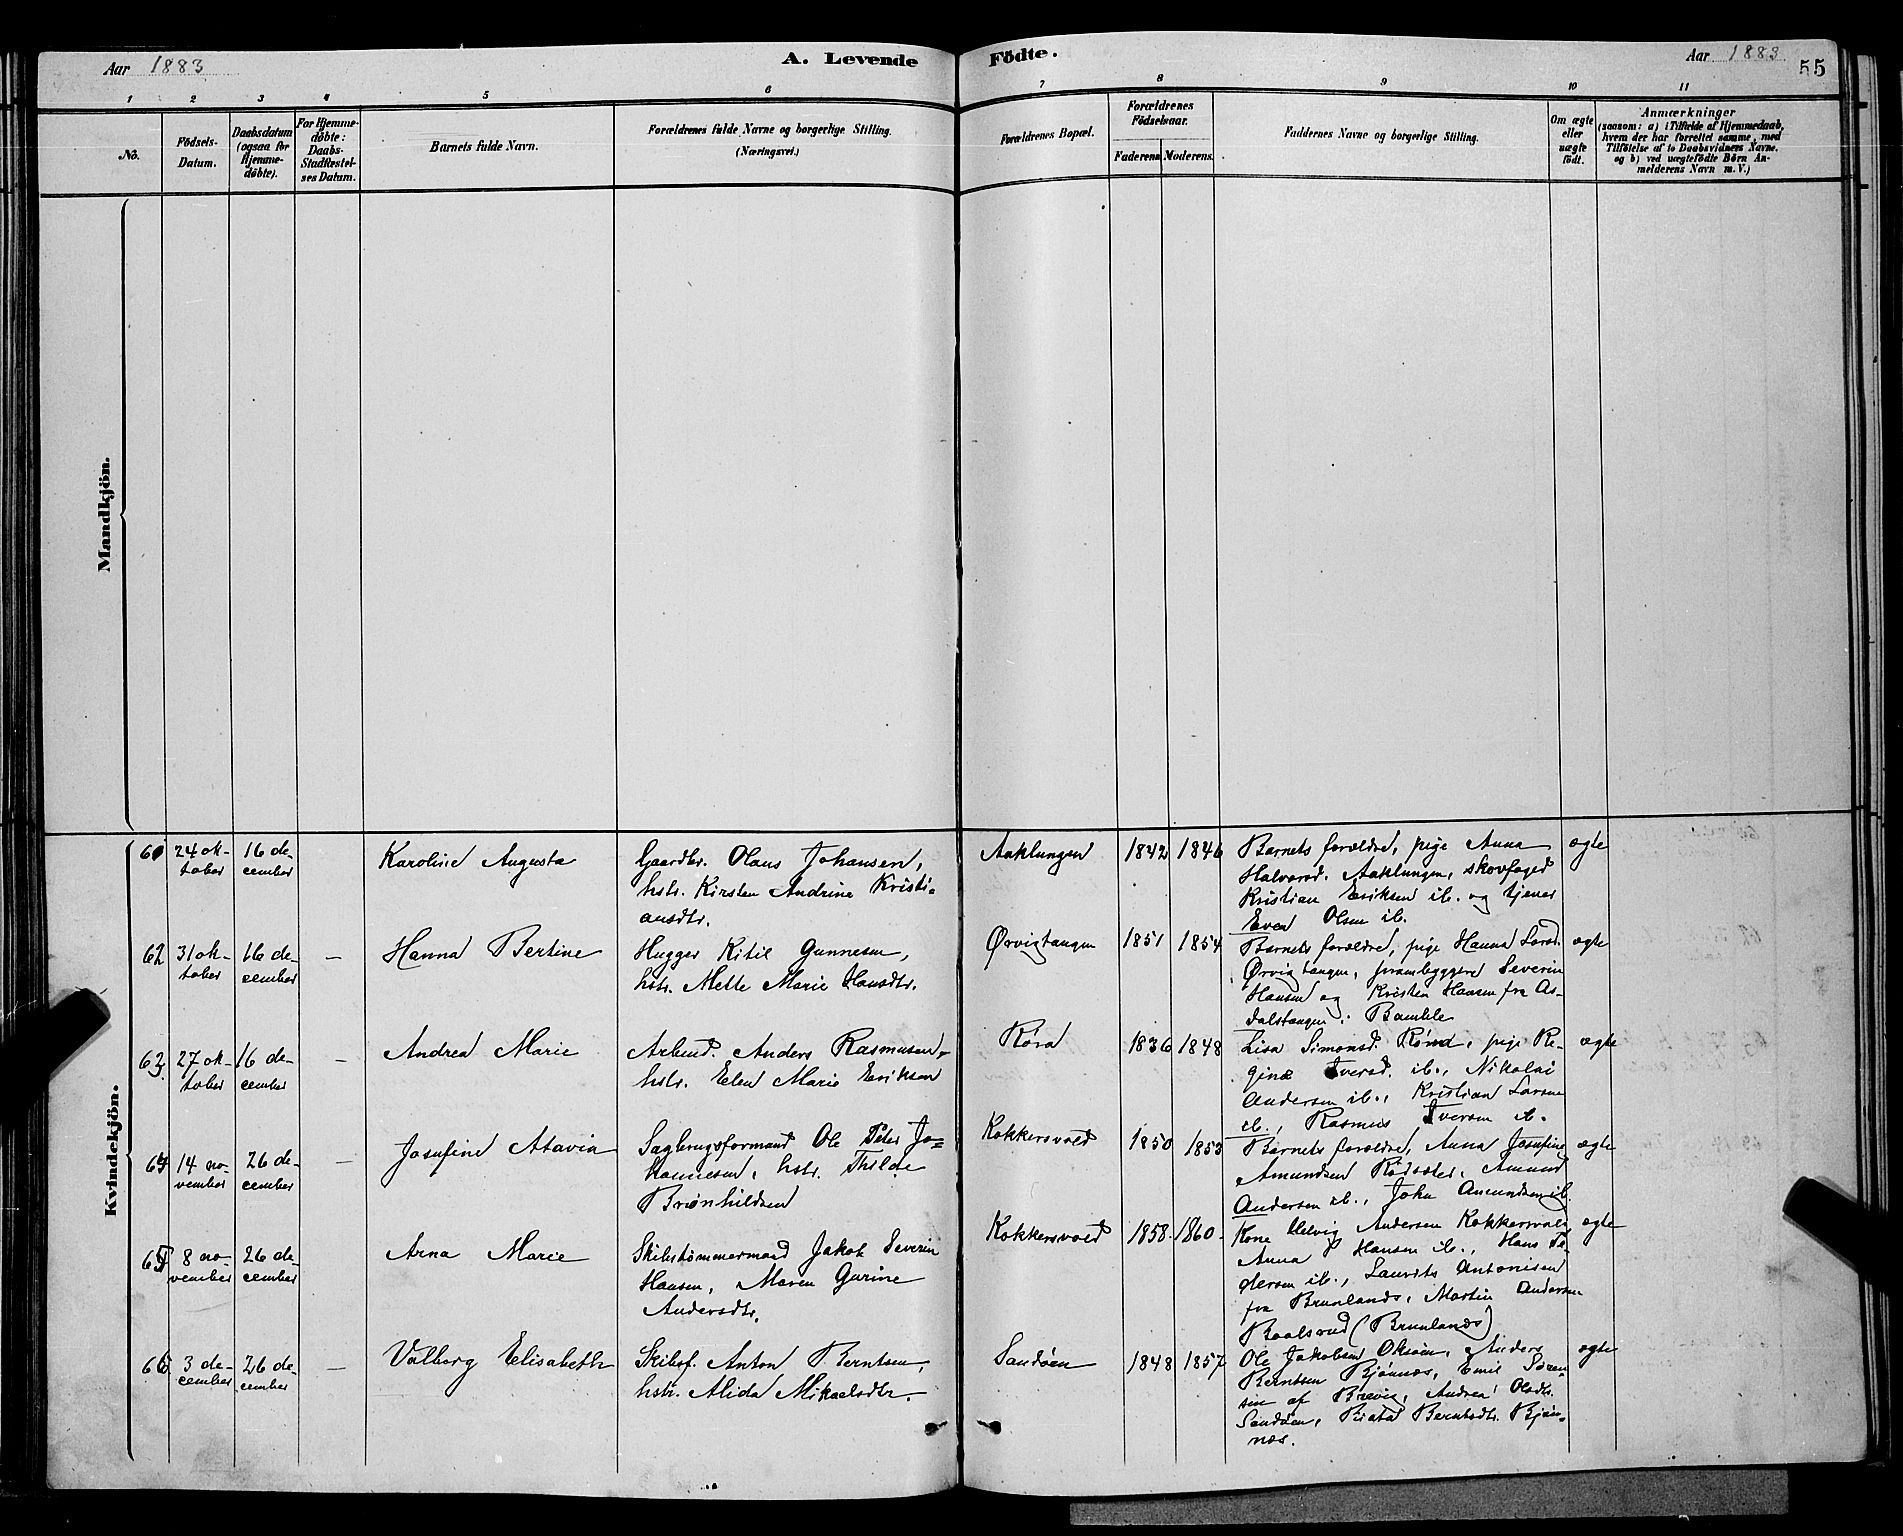 Aar 1883
A. Levende Födte.
Aar 1883
55
1 2 3 4 5 6 7 8 9 10 11
No.
Födsels-
Datum.
Daabsdatum
(ogsaa for
Hjemme-
döbte).
For Hjemme-
döbte:
Daabs-
Stadfæstel-
ses Datum.
Barnets fulde Navn.
Forældrenes fulde Navne og borgerlige Stilling.
(Næringsvei.)
Forældrenes Bopæl.
Forældrenes
Födselsaar.
Faderens Moderens.
Faddernes Navne og borgerlige Stilling.
Om ægte
eller
uægte
födt.
Anmærkninger
(saasom: a) i Tilfælde af Hjemmedaab,
hvem der har forrettet samme, med
Tilföielse af to Daabsvidners Navne.
og b) ved uægtefödte Börn An-
melderens Navn m. V.)
Mandkjön.
Kvindekjön.
61
24 ok-
tober
16 de-
cember
Karoline Augusta
Gaardbr. Olaus Johansen,
hstr. Kirsten Andrine Kristi-
ansdtr.
Aaklungen
1842
1846
Barnets forældre, pige Anna
Halvorsd. Aaklungen, skovfoged
Kristian Eriksen ib. og tjener
Even Olsen ib.
ægte
62
31 ok-
tober
16 de-
cember
—
Hanna Bertine
Hugger Kitil Gunnesen,
hstr. Mette Marie Hansdtr.
Ørvigtangen
1851
1854
Barnets forældre, pige Hanna Larsd.
Ørvigtangen, prambygger Severin
Hansen og Kristen Hansen fra As-
dalstangen i Bamble
ægte
63.
27 ok-
tober
16 de-
cember
—
Andrea Marie
Arbeid. Anders Rasmusen,
hstr. Elen Marie Eriksen
Røra
1836
1848
Lisa Simonsd. Røra, pige Re-
gine Iversd. ib., Nikolai
Andersen ib., Kristian Larsen
ib., Rasmus Iversen ib.
ægte
64
14 no-
vember
26 de-
cember
—
Josefine Atavia
Sagbrugsformand Ole Peter Jo-
hannesen, hstr. Thilde
Brønhildsen
Kokkersvold
1850
1853
Barnets forældre, Anna Josefine
Amundsen Rødsæter, Amund
Andersen ib., John Amundsen ib.
ægte
65
8 no-
vember
26 de-
cember
Arna Marie
Skibstømmermand Jakob Severin
Hansen, Maren Gurine
Andersdtr.
Kokkersvold
1858.
1860.
Kone Helvig Andersen Kokkersvold,
Anna Hansen ib., Hans Pe-
dersen ib., Laurits Antonisen
fra Brunlanæs, Martin Andersen
(Brunlanæs)
ægte
66
3 de-
cember
26 de-
cember
—
Valborg Elisabeth
Skibsf. Anton Berntsen,
hstr. Alida Mikaelsdtr.
Sandøen
1848
1857
Ole Jakobsen Oksøen, Anders
Berntsen Bjønnæs, Emil Søren-
sen af Brevig, Andrea Olsdtr.
Sandøen, Beata Berntsdtr. Bjøn-
næs.
ægte